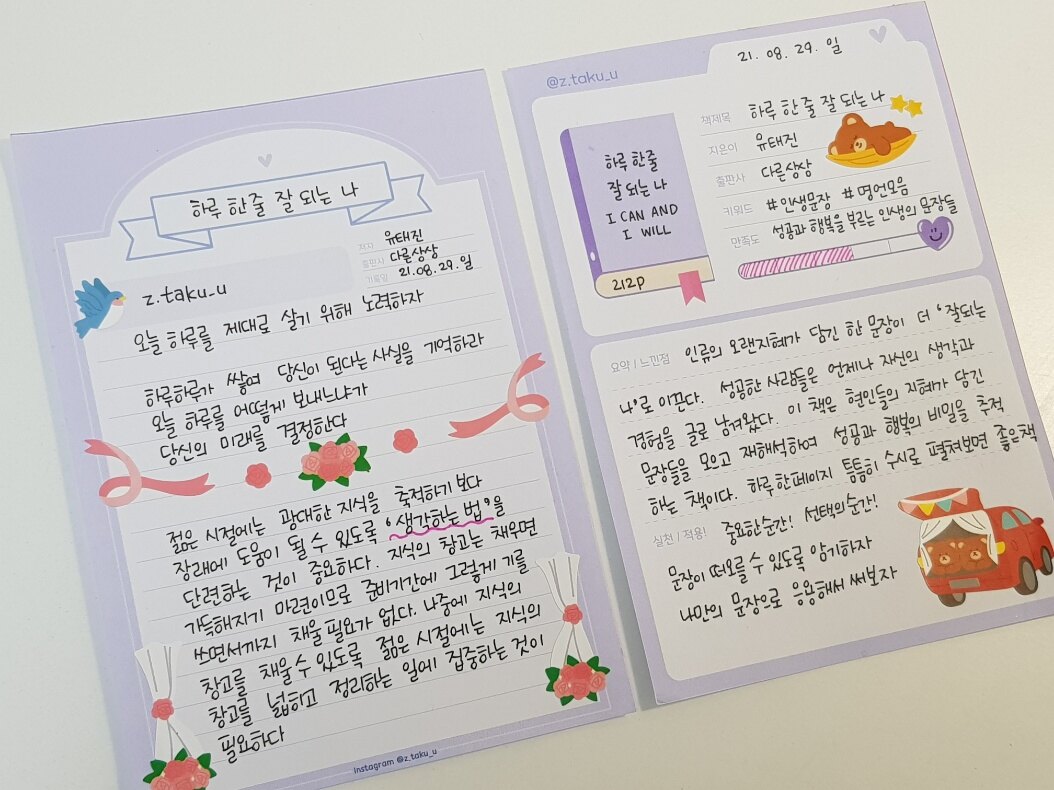 하루 한 줄 잘 되는 나
저자 유태진
출판사 다른상상
기록일 21. 08. 29. 일
z.taku_u
오늘 하루를 제대로 살기 위해 노력하자
하루하루가 쌓여 당신이 된다는 사실을 기억하라
오늘 하루를 어떻게 보내느냐가
당신의 미래를 결정한다
젊은 시절에는 광대한 지식을 축적하기 보다
장래에 도움이 될 수 있도록 '생각하는 법'을
단련하는 것이 중요하다. 지식의 창고는 채우면
가득해지기 마련이므로 준비기간에 그렇게 기를
쓰면서까지 채울 필요가 없다. 나중에 지식의
창고를 채울 수 있도록 젊은 시절에는 지식의
창고를 넓히고 정리하는 일에 집중하는 것이
필요하다
instagram @z.taku_u
@z.taku_u
21. 08. 29. 일
하루 한줄
잘 되는 나
I CAN AND
I WILL
212p
책제목 하루 한 줄 잘 되는 나
지은이 유태진
출판사 다른상상
키워드 #인생문장 #명언모음
성공과 행복을 부르는 인생의 문장들
만족도
요약 | 느낀점 인류의 오랜지혜가 담긴 한 문장이 더 '잘되는
나'로 이끈다. 성공한 사람들은 언제나 자신의 생각과
경험을 글로 남겨왔다. 이 책은 현인들의 지혜가 담긴
문장들을 모으고 재해석하여 성공과 행복의 비밀을 추적
하는 책이다. 하루한페이지 틈틈히 수시로 펼쳐보면 좋은책
실천 | 적용! 중요한순간! 선택의순간!
문장이 떠오를 수 있도록 암기하자
나만의 문장으로 응용해서 써보자